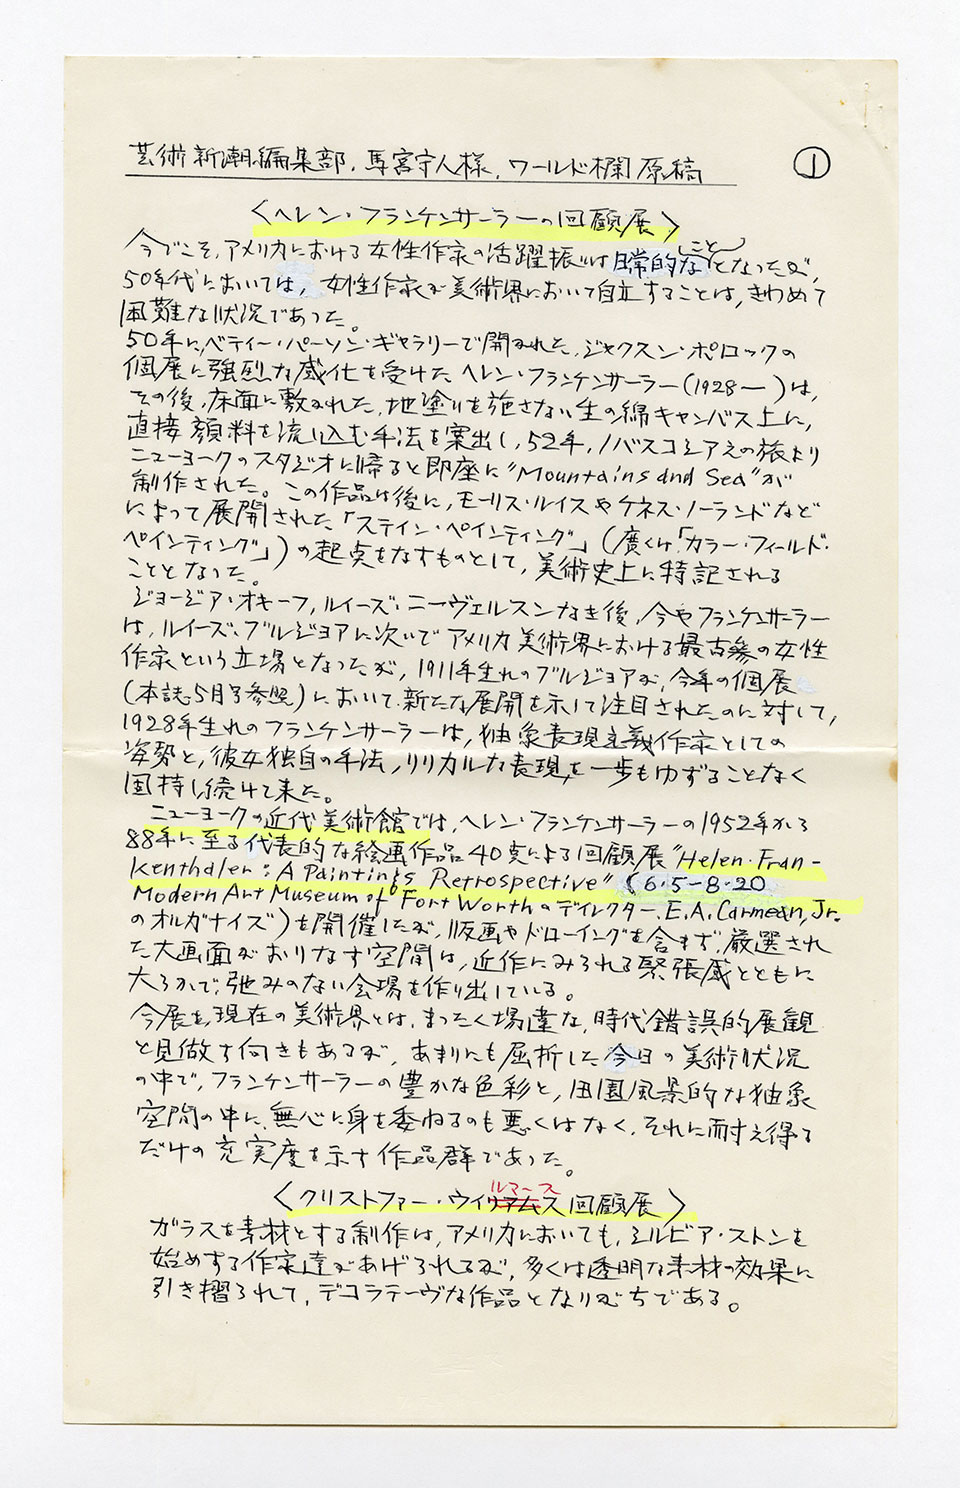 芸術新潮編集部、馬宮守人様、ワールド欄原稿 ①
〈ヘレン・フランケンサーラーの回顧展〉
今でこそ、アメリカにおける女性作家の活躍振りは日常的なこととなったが、
50年代においては、女性作家が美術界において自立することは、きわめて
困難な状況であった。
50年に、ベティー・パーソン・ギャラリーで開かれた、ジャクスン・ポロックの
個展に強烈な感化を受けたヘレン・フランケンサーラー(1928ー )は、
その後、床面に敷かれた、地塗りを施さない生の綿キャンバス上に、
直接顔料を流し込む手法を案出し、52年、ノバスコシアえの旅より
ニューヨークのスタジオに帰ると即座に"Mountains and Sea"が
制作された。この作品は後に、モーリス・ルイスやケネス・ノーランドなど
によって展開された「ステイン・ペインティング」(広くは「カラー・フィールド・
ペインティング」)の起点をなすものとして、美術史上に特記される
こととなった。
ジョージア・オキーフ、ルイーズ・ニーヴェルスンなき後、今やフランケンサーラー
は、ルイーズ・ブルジョアに次いでアメリカ美術界における最古参の女性
作家という立場となったが、1911年生れのブルジョアが、今年の個展
(本誌5月号参照)において新たな展開を示して注目されたのに対して、
1928年生れのフランケンサーラーは、抽象表現主義作家としての
姿勢と、彼女独自の手法、リリカルな表現を一歩もゆずることなく
固持し続けて来た。
ニューヨークの近代美術館では、ヘレン・フランケンサーラーの1952年から
88年に至る代表的な絵画作品40点による回顧展"Helen Fran-
kenthaler: A Paintings Retrospective"(6・5-8・20
Modern Art Museum of Fort Worthのディレクター、E.A.Carmean, Jr.
のオルガナイズ)を開催したが、版画やドローイングを含まず、厳選され
た大画面がおりなす空間は、近作にみられる緊張感とともに
大らかで、弛みのない会場を作り出している。
今展を、現在の美術界とは、まったく場違な、時代錯誤的展観
と見做す向きもあるが、あまりにも屈折した今日の美術状況
の中で、フランケンサーラーの豊かな色彩と、田園風景的な抽象
空間の中に、無心に身を委ねるのも悪くはなく、それに耐え得る
だけの充実度を示す作品群であった。
〈クリストファー・ウィルマース回顧展〉
ガラスを素材とする制作は、アメリカにおいても、シルビア・ストンを
始めする作家達があげられるが、多くは透明な素材の効果に
引き摺られて、デコラテーヴな作品となりがちである。